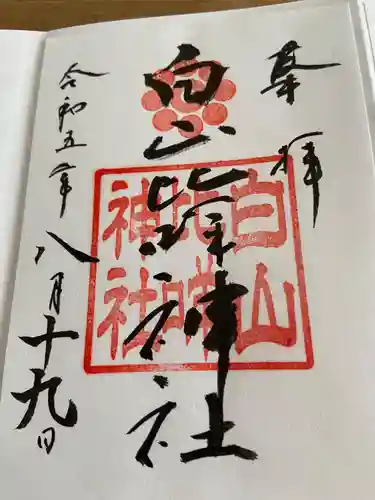 奉拝
白山比咩神社
令和五年
八月十九日
白山
比咩
神社